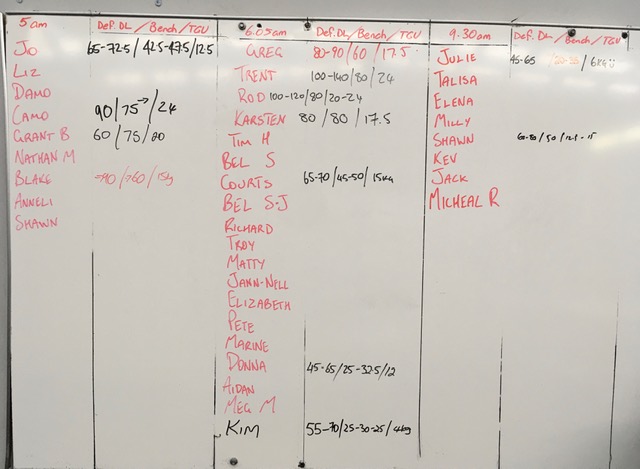 5am Def. DL / Bench / TGU
Jo 65-72.5 / 42.5-47.5 / 12.5
Liz
Damo
Camo 90 / 75 → / 24
Grant B 60 / 75 / 20
Nathan M
Blake
Anneli
Shawn
6.05am Def. DL / Bench / TGU
Greg 80-90 / 60 / 17.5
Trent 100-140 / 80 / 24
Rod 100-120 / 80 / 20-24
Karsten 80 / 80 / 17.5
Tim H
Bel S
Courts 65-70 / 45-50 / 15kg
Bel S-J
Richard
Troy
Matty
Jann-Nell
Elizabeth
Pete
Marine
Donna 45-65 / 25-32.5 / 12
Aidan
Meg M
Kim 55-70 / 25-30-25 / 4kg
9.30am Def. DL / Bench / TGU
Julie 45-65
Talisa
Elena
Milly
Shawn
Kev
Jack
Micheal R